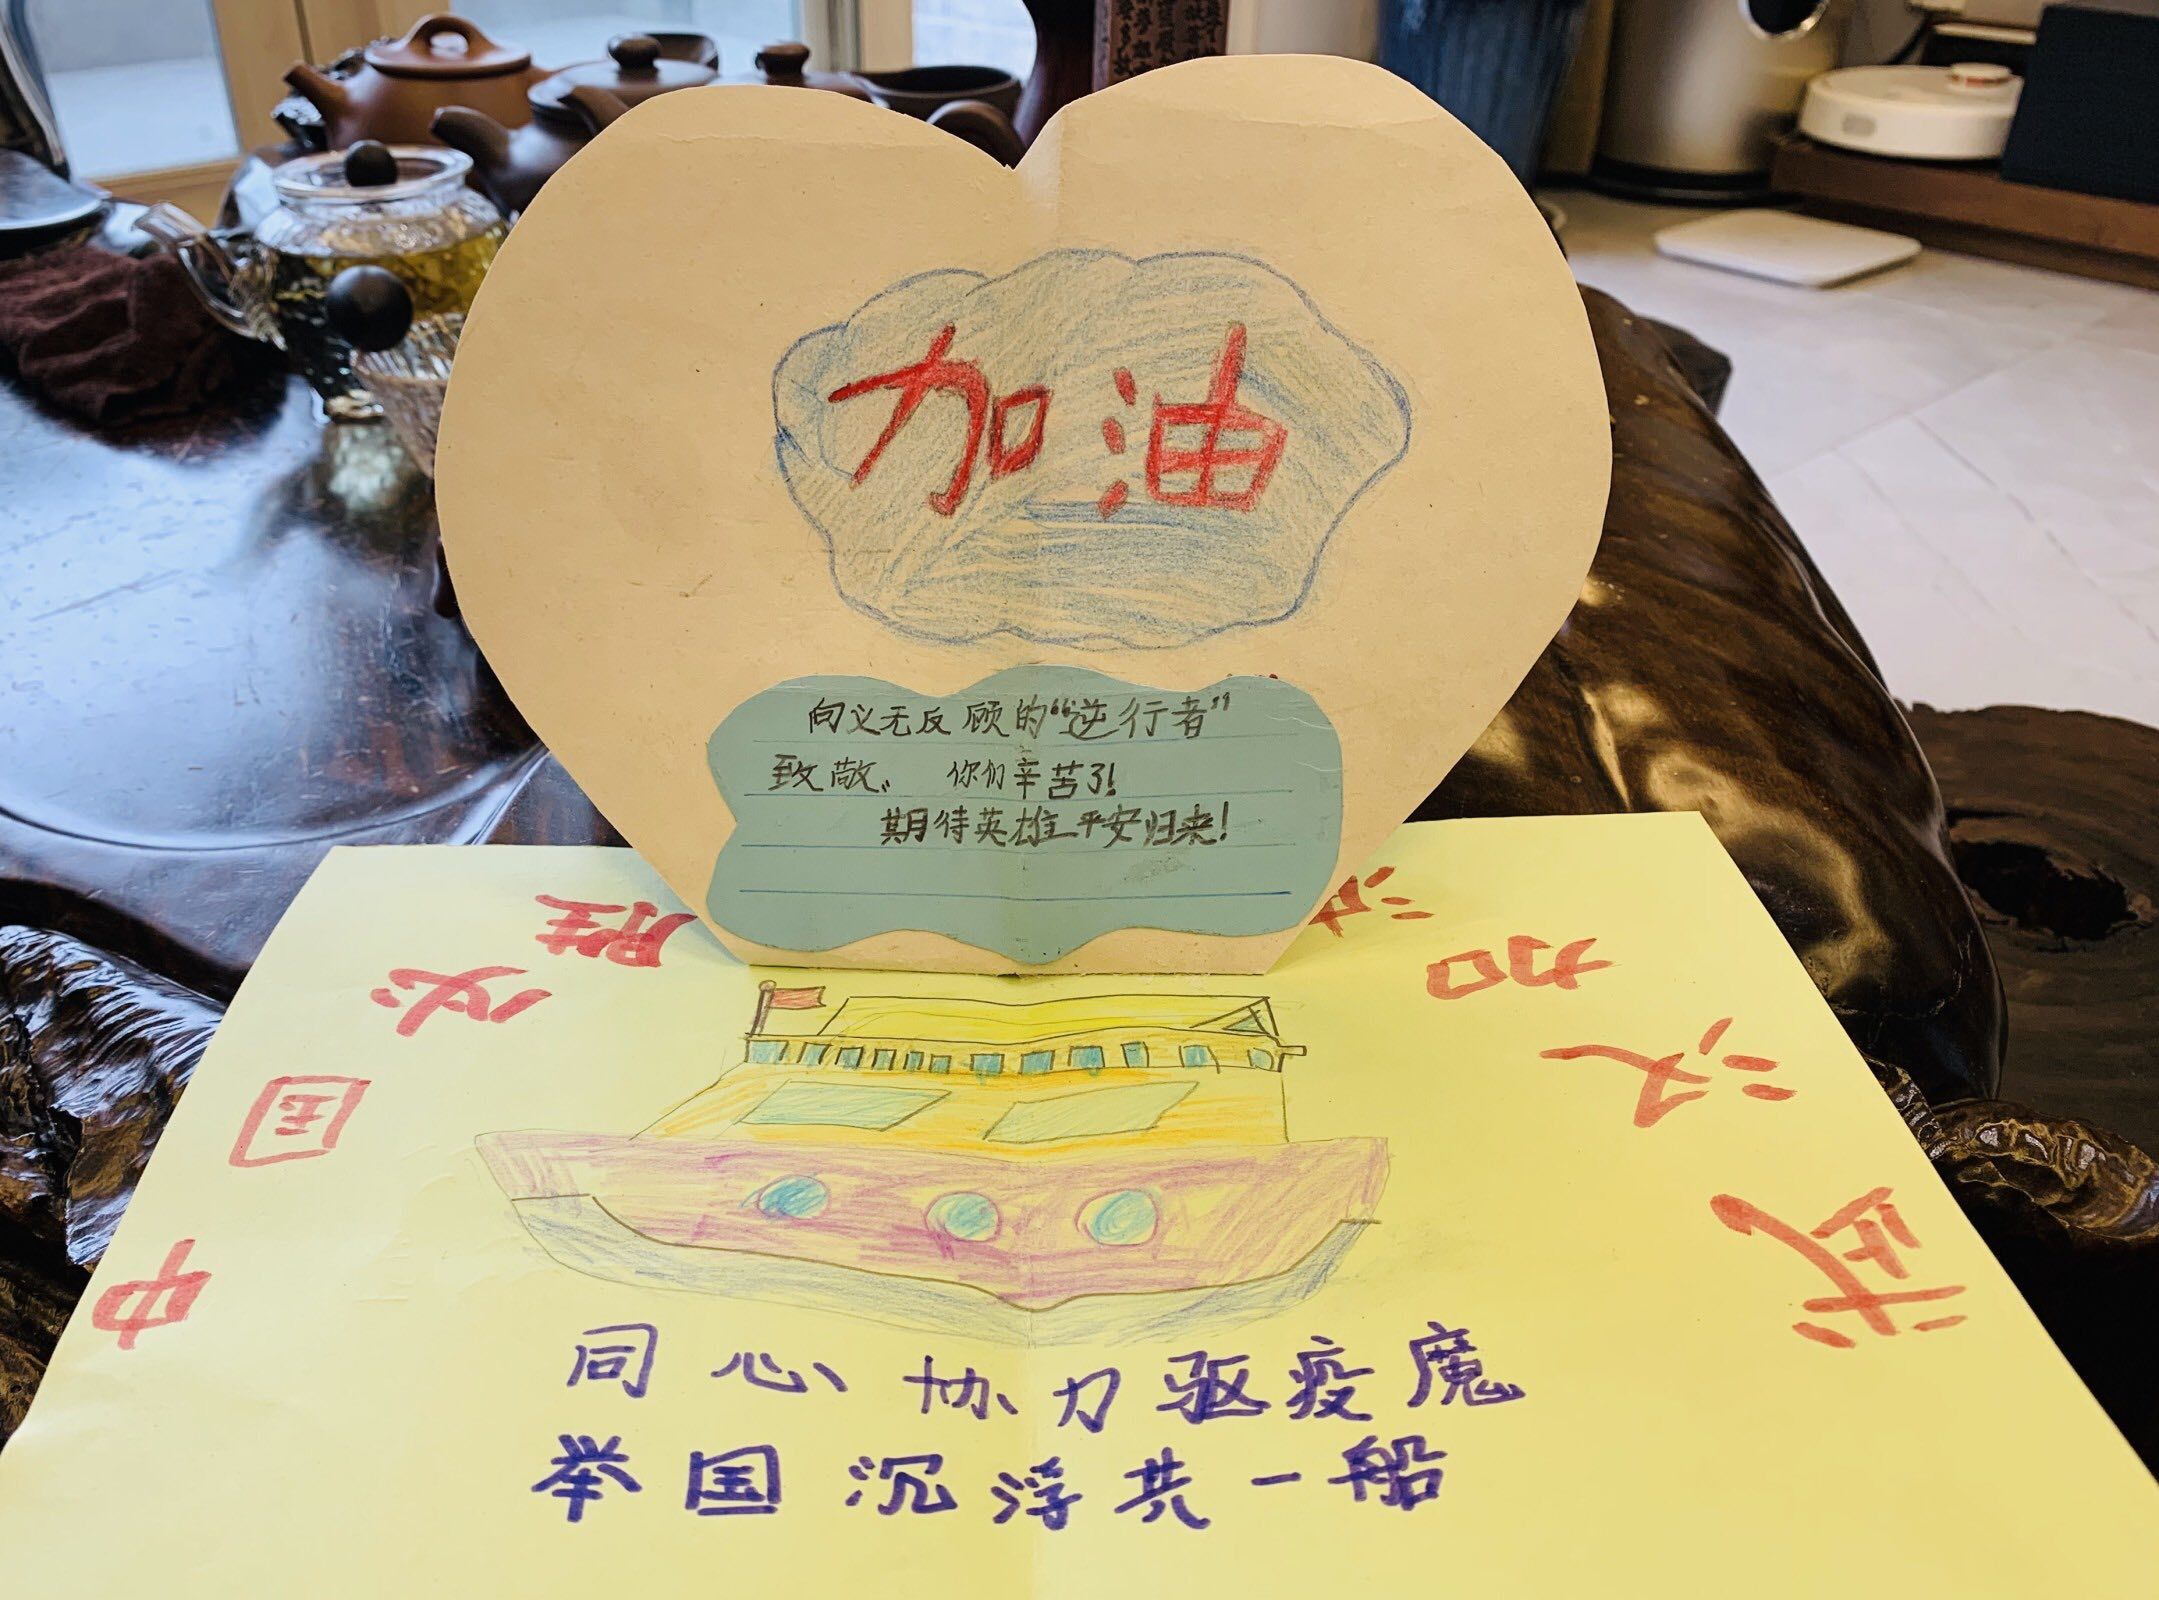 加油
向义无反顾的“逆行者”
致敬。 你们辛苦了!
期待英雄平安归来!
中国必胜
武汉加油
同心协力驱疫魔
举国沉浮共一船